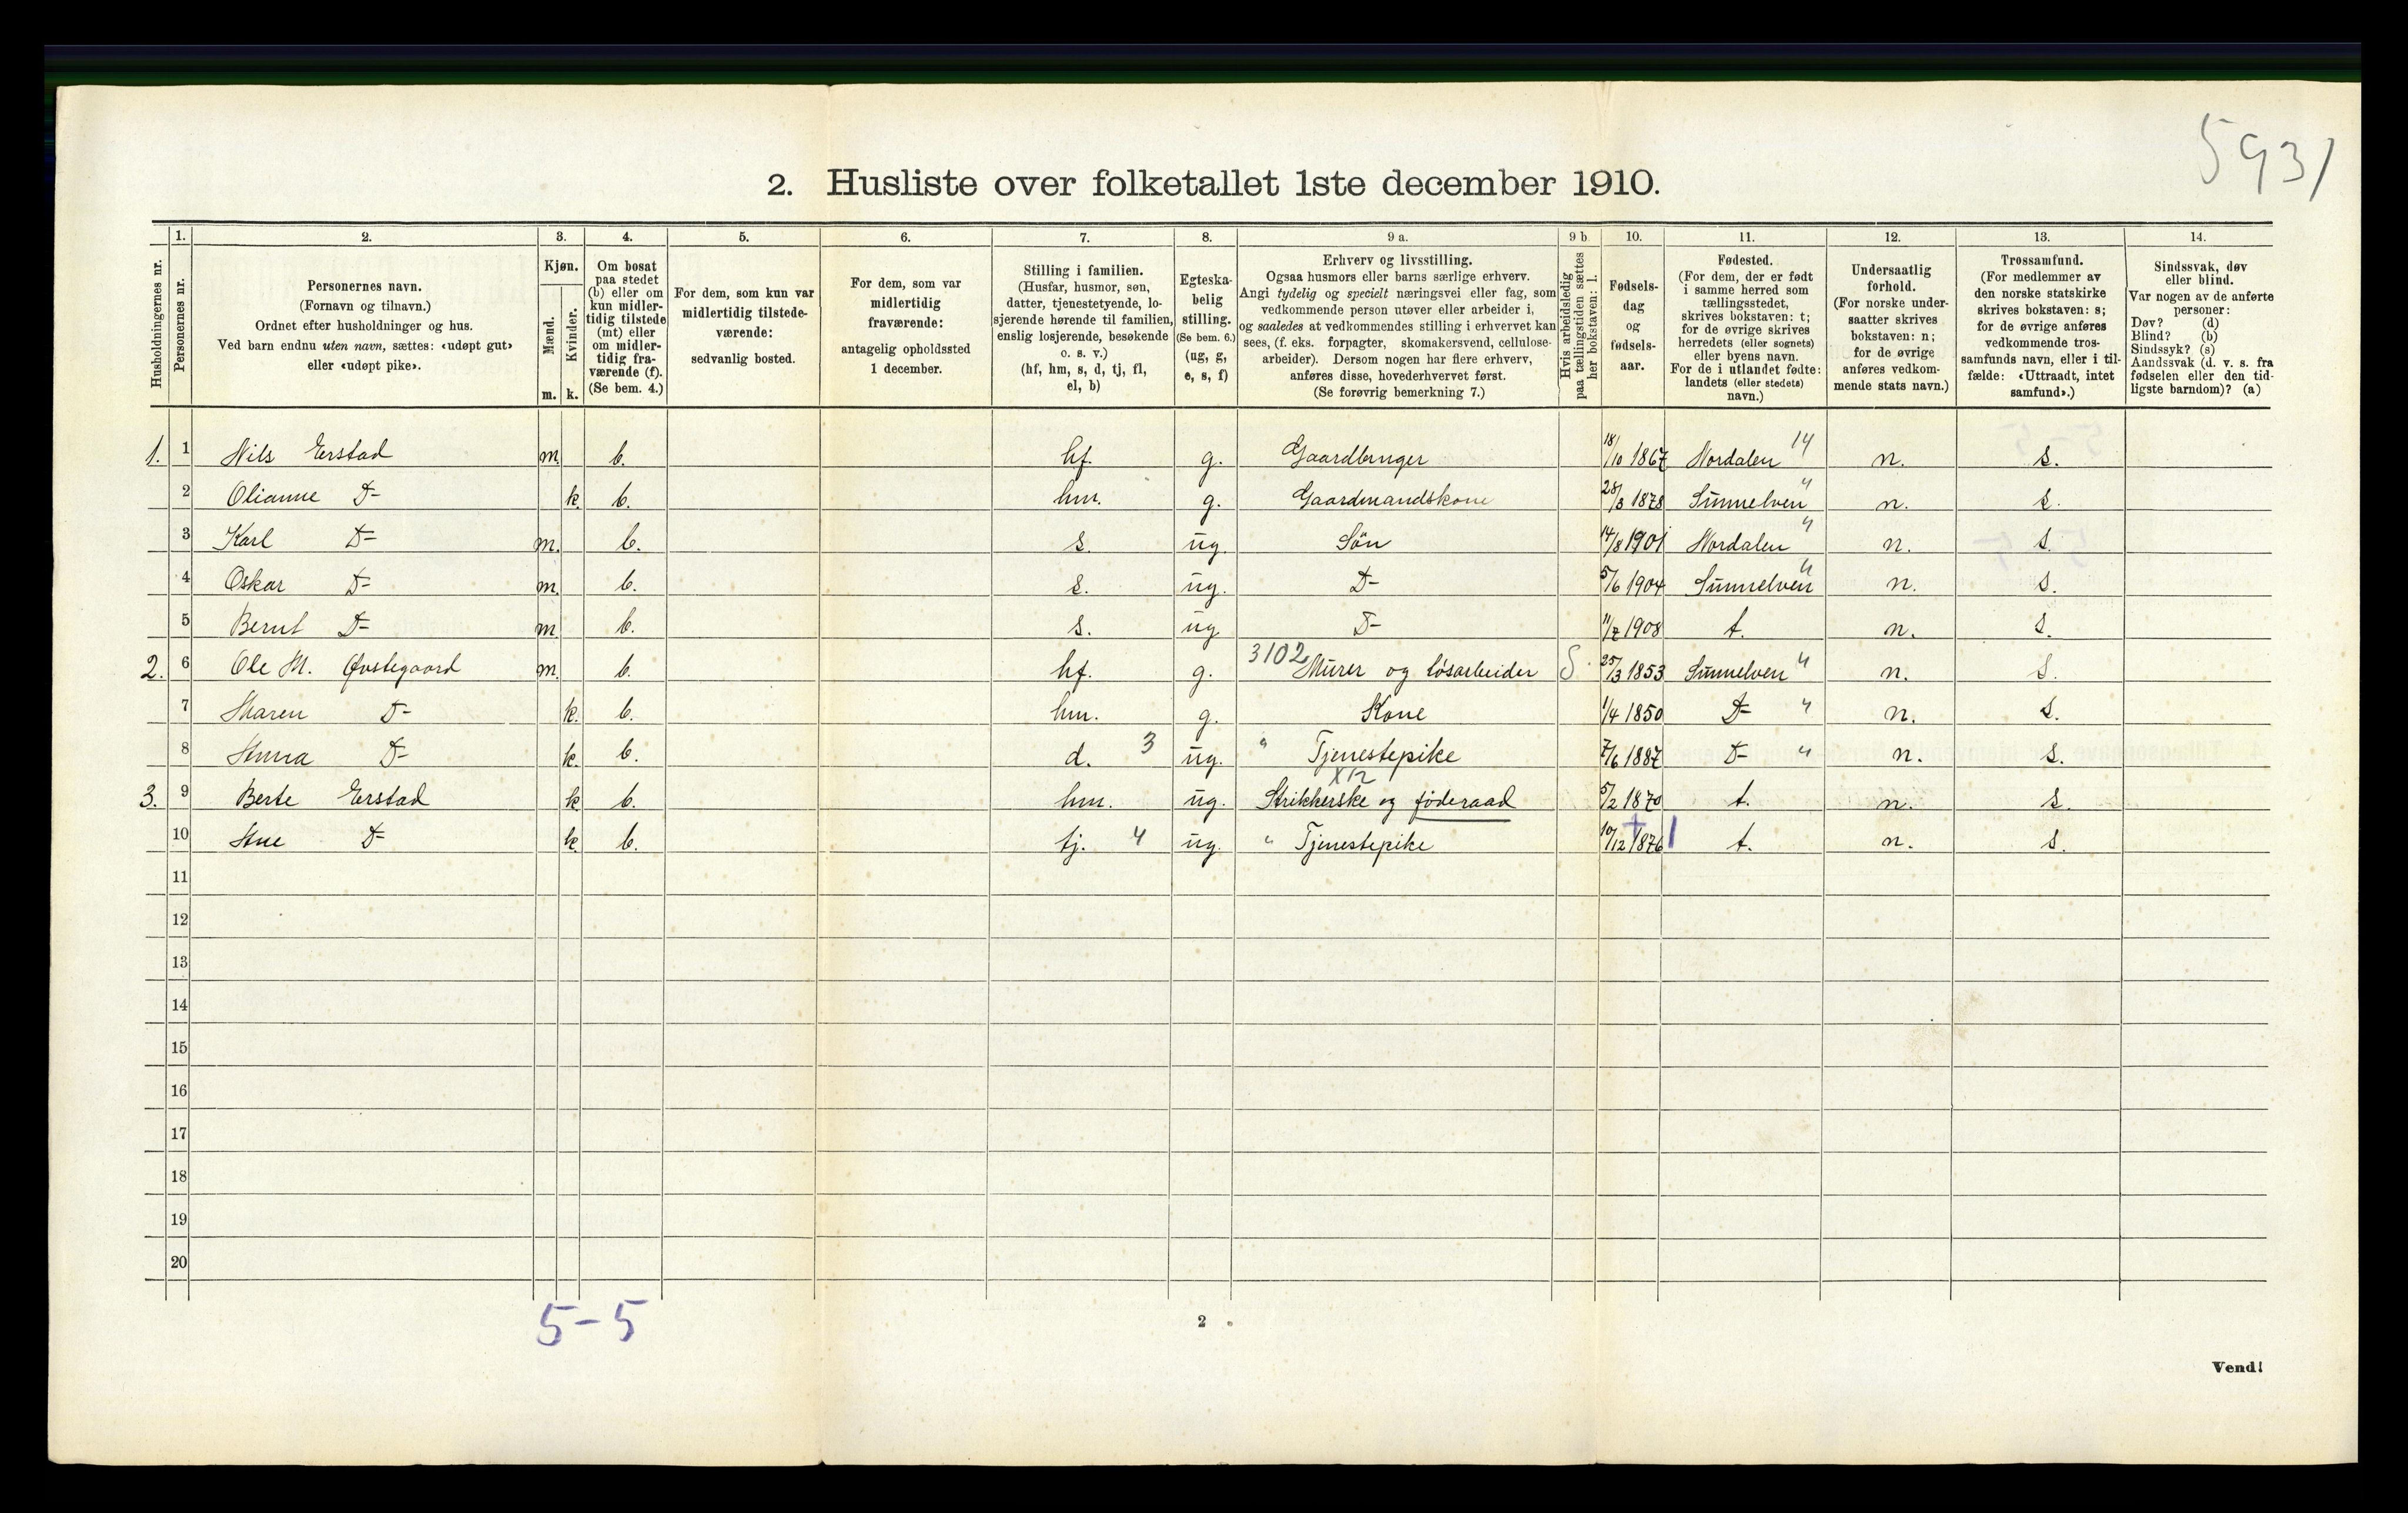 5931
2. Husliste over folketallet 1ste december 1910.
Husholdningernes nr.
1. Personernes nr.
2. Personernes navn.
(Fornavn og tilnavn.)
Ordnet efter husholdninger og hus.
Ved barn endnu uten navn, sættes: «udøpt gut»
eller «udøpt pike».
3. Kjøn.
Mænd. Kvinder.
m. k.
4. Om bosat
paa stedet
(b) eller om
kun midler-
tidig tilstede
(mt) eller
om midler-
tidig fra-
værende (f).
(Se bem. 4.)
5. For dem, som kun var
midlertidig tilstede-
værende:
sedvanlig bosted.
6. For dem, som var
midlertidig
fraværende:
antagelig opholdssted
1 december.
7. Stilling i familien.
(Husfar, husmor, søn,
datter, tjenestetyende, lo-
sjerende hørende til familien,
enslig losjerende, besøkende
o. s. v.)
(hf, hm, s, d, tj, fl,
el, b)
8. Egteska-
belig
stilling.
(Se bem. 6.)
(ug, g,
e, s, f)
9 a. Erhverv og livsstilling.
Ogsaa husmors eller barns særlige erhverv.
Angi tydelig og specielt næringsvei eller fag, som
vedkommende person utøver eller arbeider i,
og saaledes at vedkommendes stilling i erhvervet kan
sees, (f. eks. forpagter, skomakersvend, cellulose-
arbeider). Dersom nogen har flere erhverv,
anføres disse, hovederhvervet først.
(Se forøvrig bemerkning 7.)
9 b Hvis arbeidsledig
paa tællingstiden sættes
her bokstaven: l.
10. Fødsels-
dag
og
fødsels-
aar.
11. Fødested.
(For dem, der er født
i samme herred som
tællingsstedet,
skrives bokstaven: t;
for de øvrige skrives
herredets (eller sognets)
eller byens navn.
For de i utlandet fødte:
landets (eller stedets)
navn.)
12. Undersaatlig
forhold.
(For norske under-
saatter skrives
bokstaven: n;
for de øvrige
anføres vedkom-
mende stats navn.)
13. Trossamfund.
(For medlemmer av
den norske statskirke
skrives bokstaven: s;
for de øvrige anføres
vedkommende tros-
samfunds navn, eller i til-
fælde: «Uttraadt, intet
samfund».)
14. Sindssvak, døv
eller blind.
Var nogen av de anførte
personer:
Døv? (d)
Blind? (b)
Sindssyk? (s)
Aandssvak (d. v. s. fra
fødselen eller den tid-
ligste barndom)? (a)
1. 1 Nils Erstad m. b. hf. g. Gaardbruger 18/10 1867 Nordalen 14 n. s.
2 Olianne D- k. b. hm. g. Gaardmandskone 28/3 1878 Sunnelven " n. s.
3 Karl D- m. b. s. ug. Søn 14/8 1901 Nordalen " n. s.
4 Oskar D- m. b. s. ug. D- 5/6 1904 Sunnelven " n. s.
5 Bernt D- m. b. s. ug D- 11/7 1908 t. n. s.
2. 6 Ole M. Øvstegaard m. b. hf. g. 3102 Murer og løsarbeider S 25/3 1853 Sunnelven " n. s.
7 Maren D- k. b. hm. g. Kone 1/4 1850 D- " n. s.
8 Anna D- k. b. d. 3 ug. " Tjenestepike 7/6 1887 D- " n. s.
3. 9 Berte Erstad k b. hm. ug. Strikkerske og føderaad 5/2 1870 t. n. s.
10 Ane D- k. b. tj. 4 ug. " Tjenestepike 10/12 1876 t. n. s.
11
12
13
14
15
16
17
18
19
20
5-5
2
Vend!